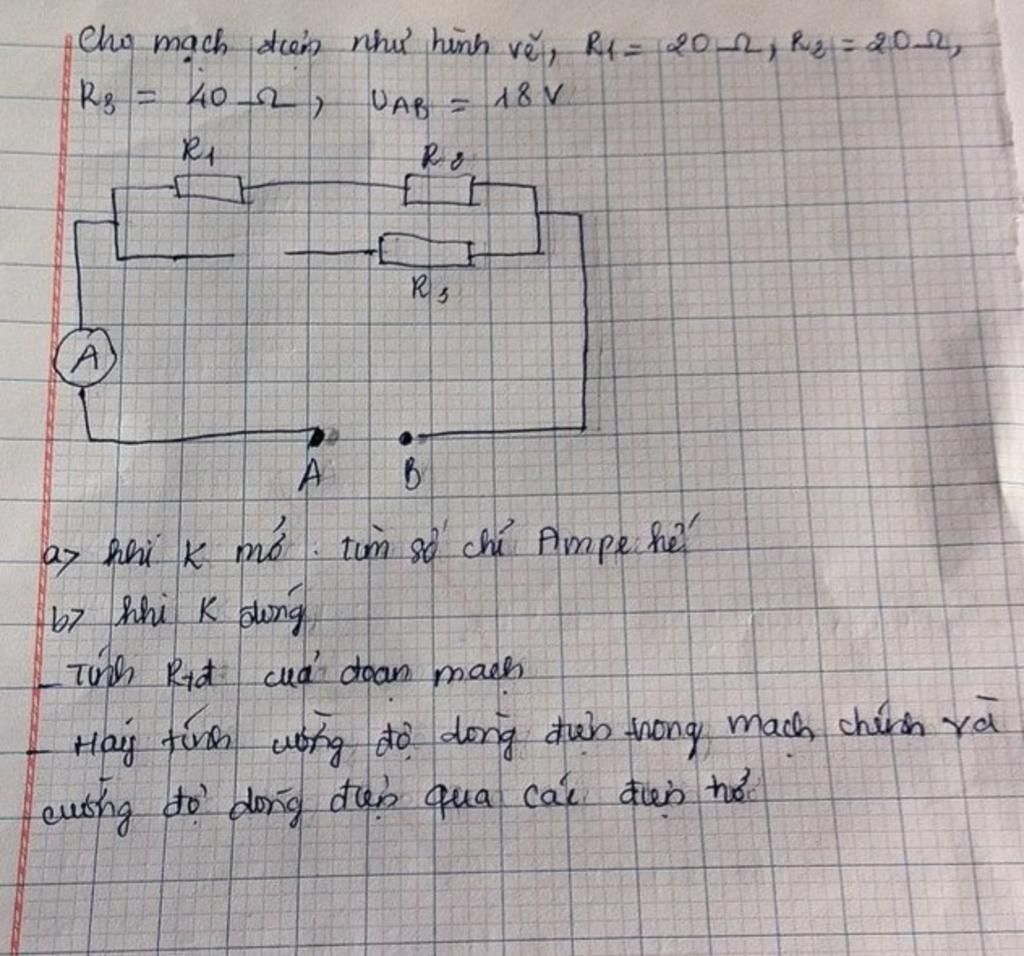 Cho mạch điện như hình vẽ, R1 = 20 Ω, R2 = 20 Ω,
R3 = 40 Ω, UAB = 18 V
R1 R2
R3
A
A B
a> khi K mở. tìm số chỉ Ampe kế
b> khi K đóng
- Tính Rtđ của đoạn mạch
- Hãy tính cường độ dòng điện trong mạch chính và
cường độ dòng điện qua các điện trở.